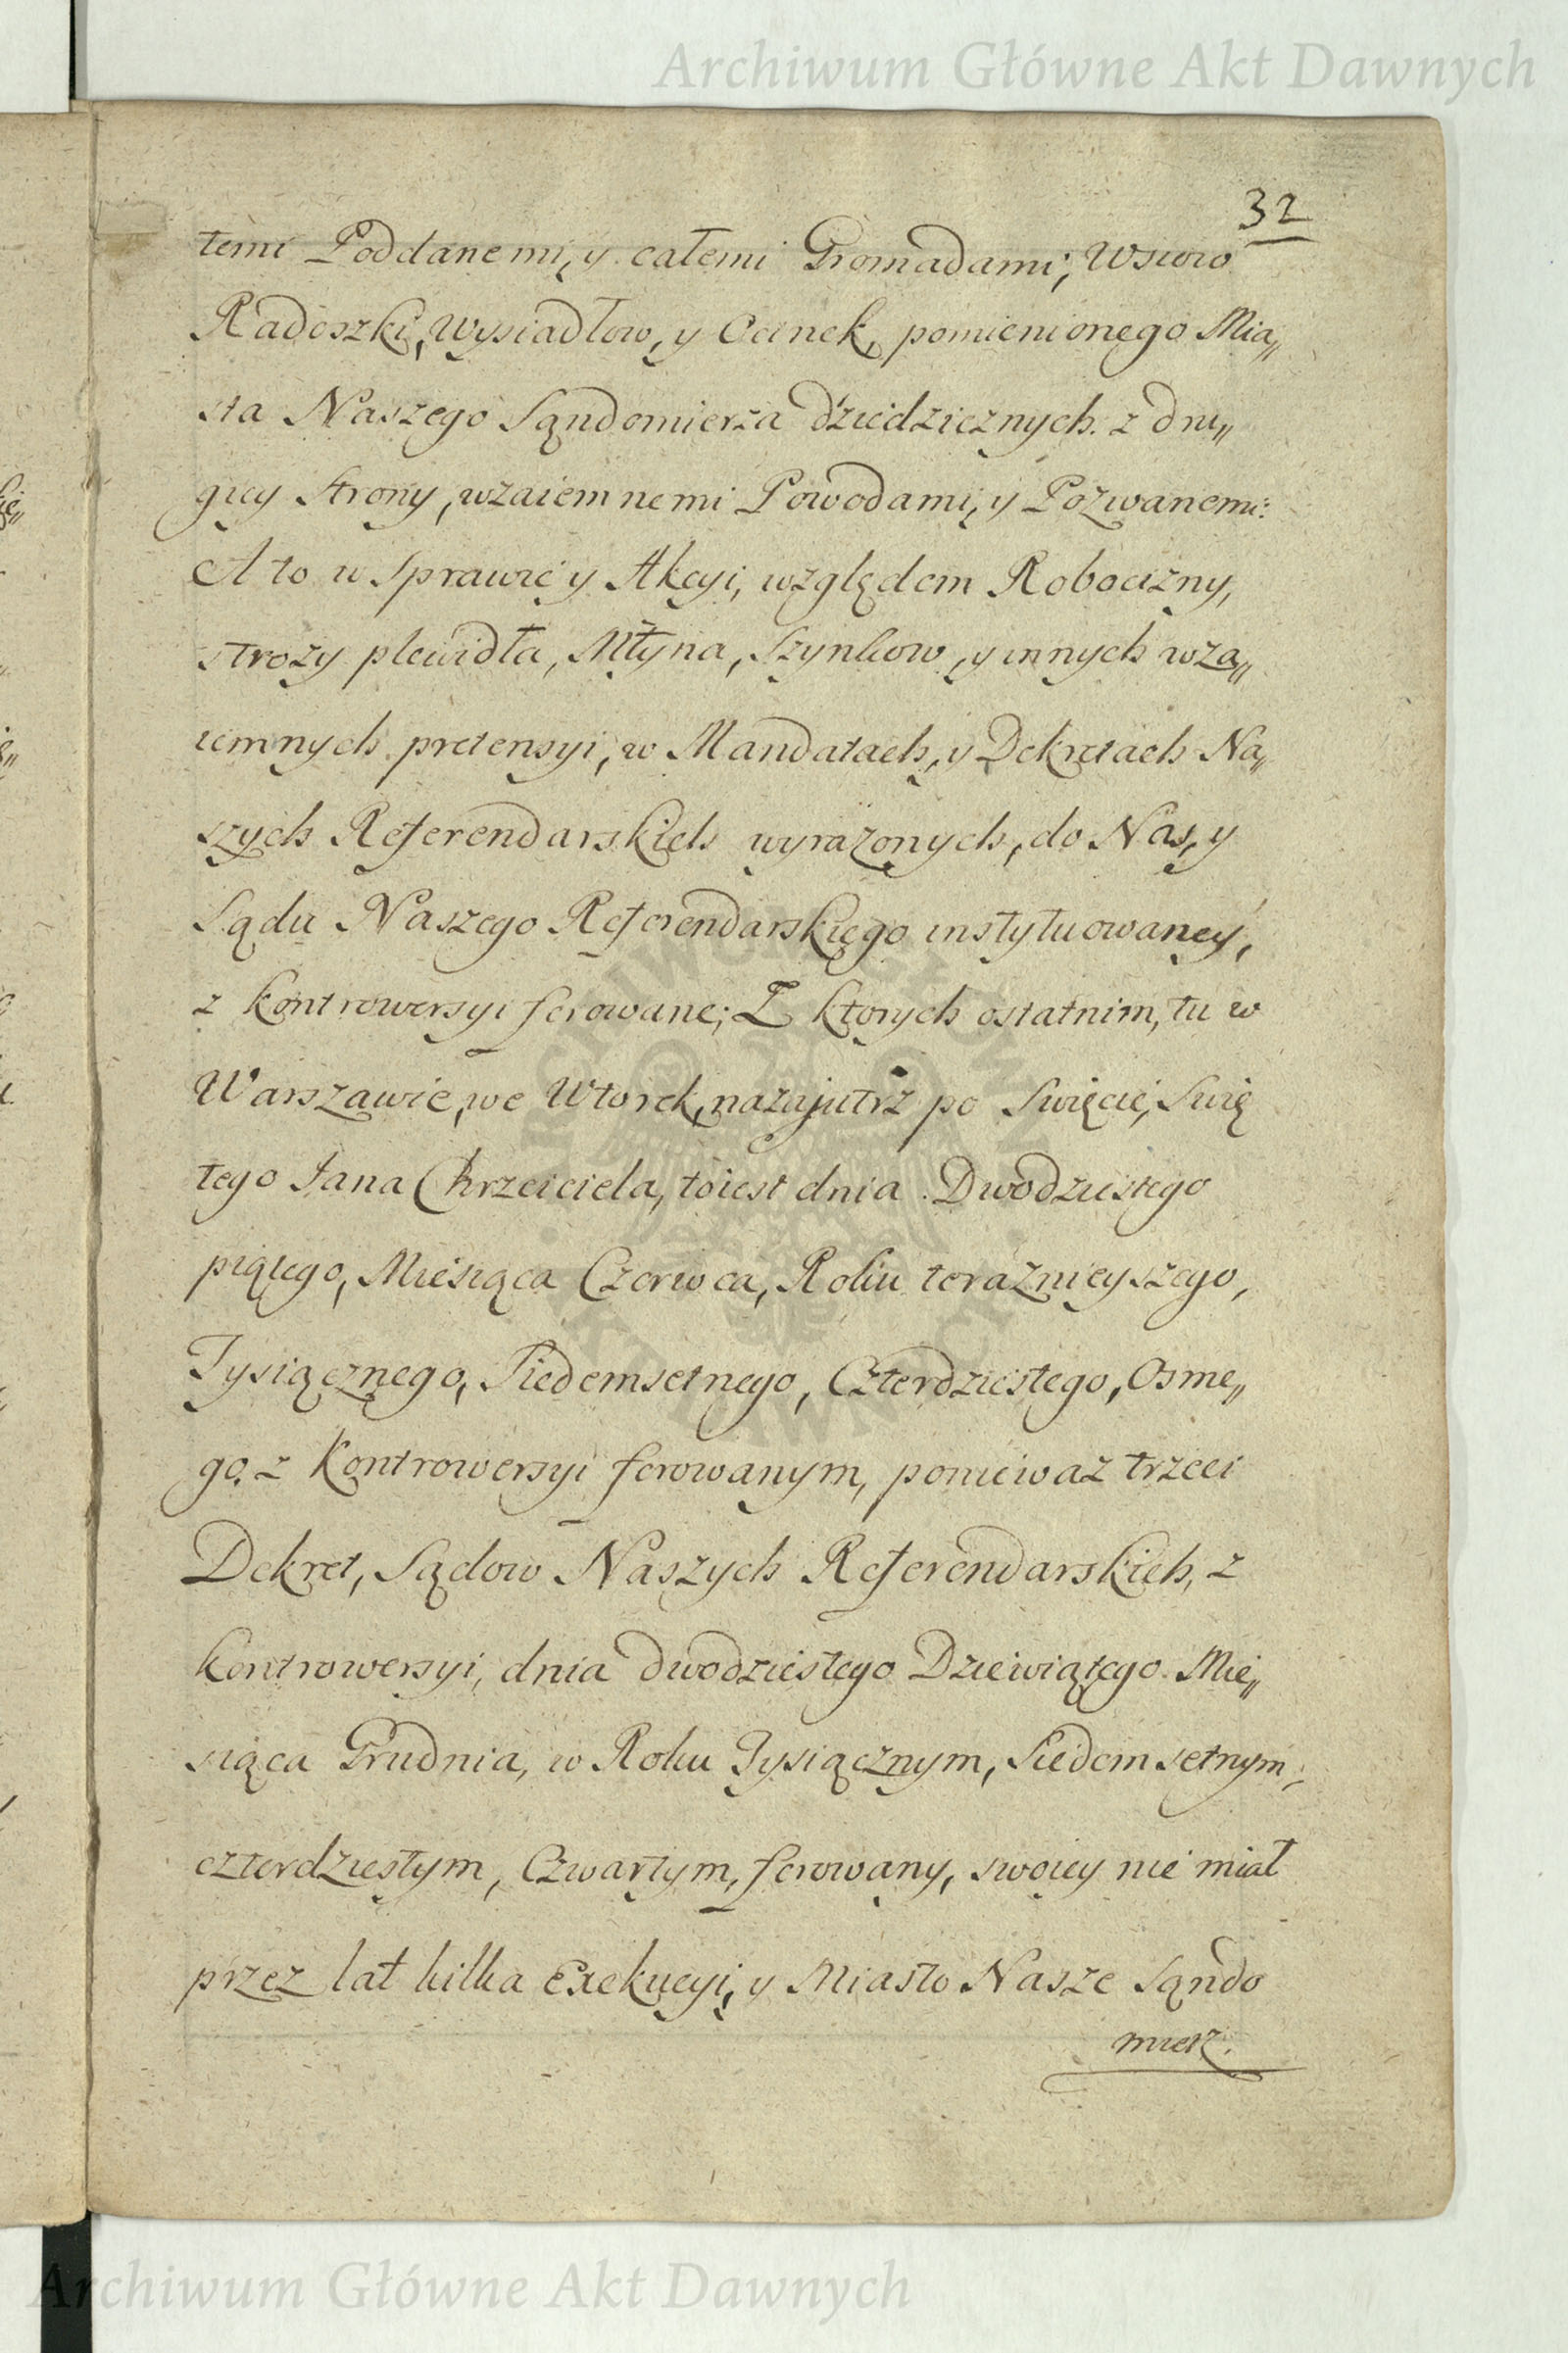 Archiwum Główne Akt Dawnych
32
temi Poddanemi, y całemi Gromadami, Wsiow
Radoszki, Wysiadłow, y Ocinek, pomienionego Mia„
sta Naszego Sąndomierza dziedzicznych. z dru„
giey Strony, wzaiemnemi Powodami, y Pozwanemi:
A to w Sprawie y Akcyi, względem Robocizny,
strozy plewidła, Młyna, Szynkow, y innych wza„
iemnych pretensyi, w Mandatach, y Dekretach Na„
szych Referendarskich wyrazonych, do Nas, y
Sądu Naszego Referendarskiego instytuowaney,
z kontrowersyi ferowane; Z ktorych ostatnim, tu w
Warszawie, we Wtorek, nazajutrz po Swięcie, Swię
tego Jana Chrzciciela, toiest dnia Dwodziestego
piątego, Miesiąca Czerwca, Roku teraznieyszego,
Tysiącznego, Siedemsetnego, Czterdziestego, Osme„
go, z Kontrowersyi ferowanym, poniewaz trzeci
Dekret, Sądow Naszych Referendarskich, z
kontrowersyi, dnia dwodziestego Dziewiątego Mie„
siąca Grudnia, w Roku Tysiącznym, Siedemsetnym,
czterdziestym, Czwartym, ferowany, swoiey nie miał
przez lat kilka Exekucyi, y Miasto Nasze Sąndo
mierz.
Archiwum Główne Akt Dawnych